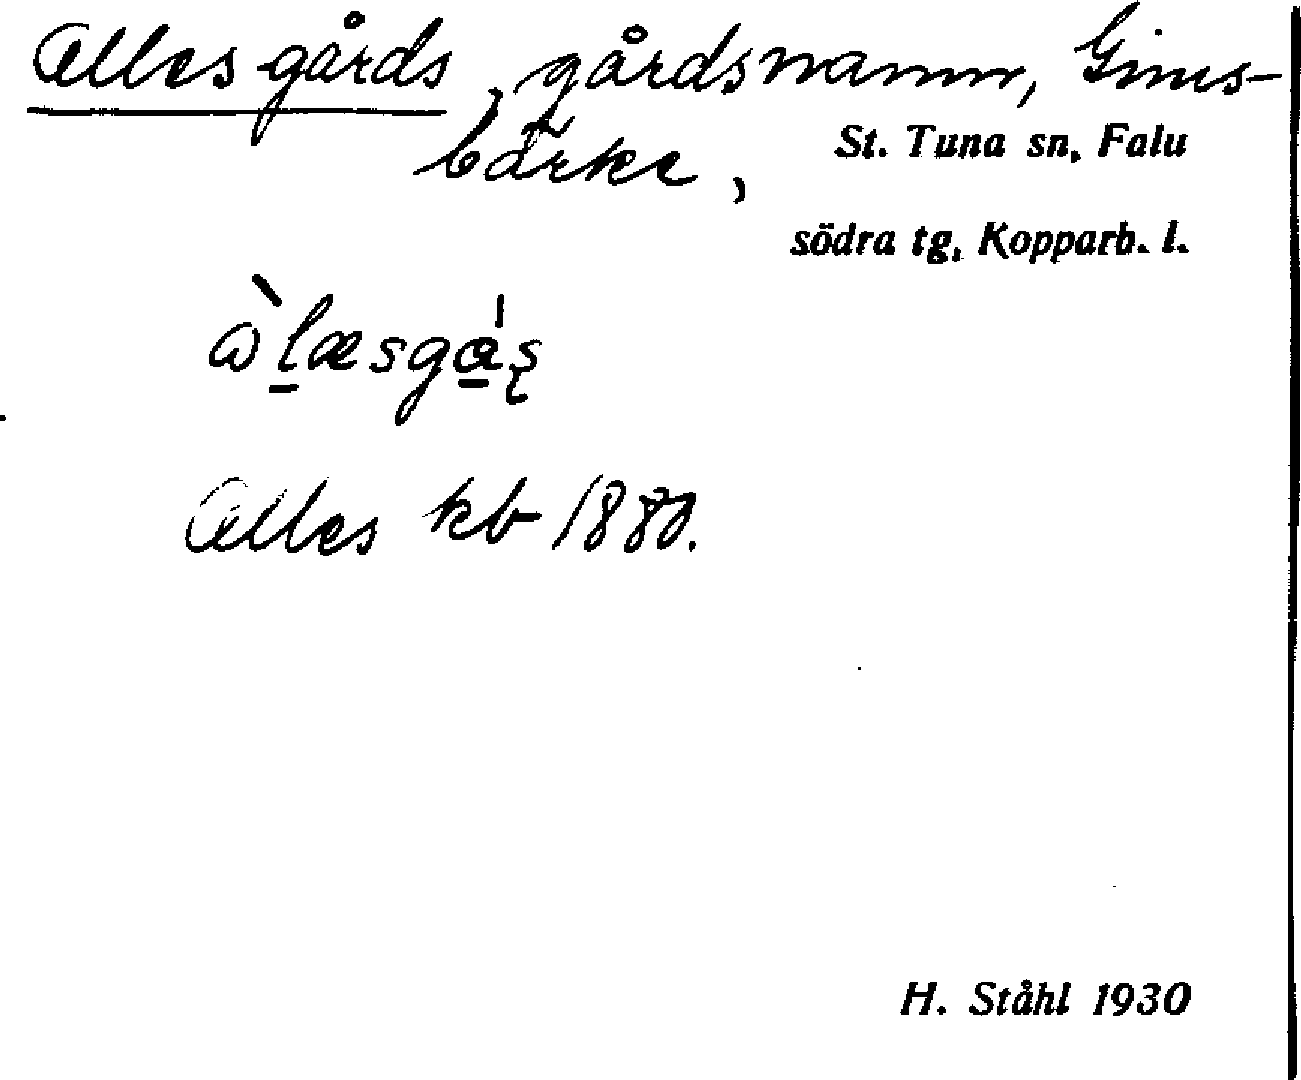 Allesgårds, gårdsnamn, Gims-
bärke,
St. Tuna sn, Falu
södra tg, Kopparb. l.
Alles kb 1880.
H. Ståhl 1930